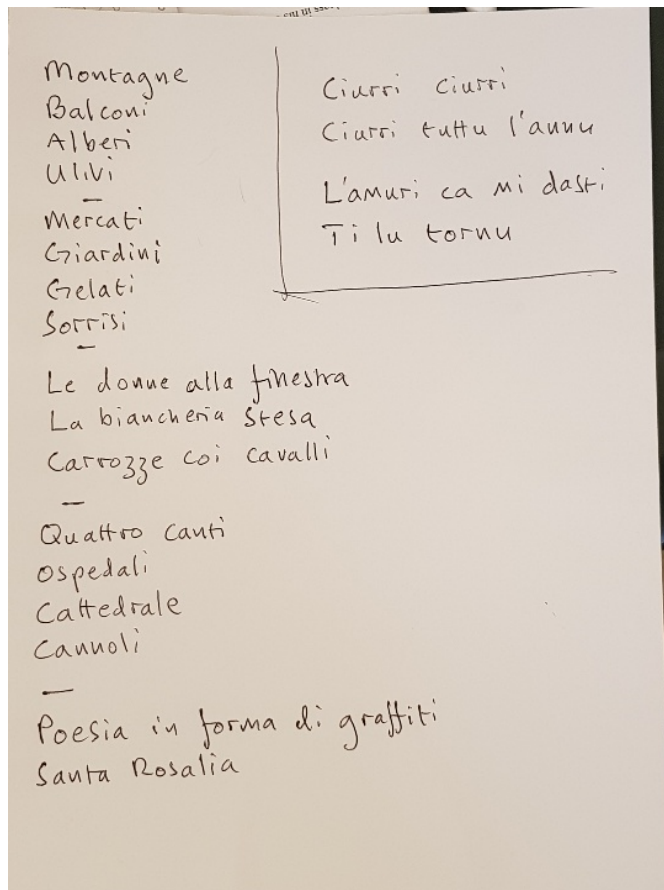 Montagne
Balconi
Alberi
Ulivi
—
Mercati
Giardini
Gelati
Sorrisi
—
Le donne alla finestra
La biancheria stesa
Carrozze coi cavalli
—
Quattro canti
Ospedali
Cattedrale
Cannoli
—
Poesia in forma di graffiti
Santa Rosalia
Ciurri ciurri
Ciurri tuttu l'annu
L'amuri ca mi dasti
Ti lu tornu